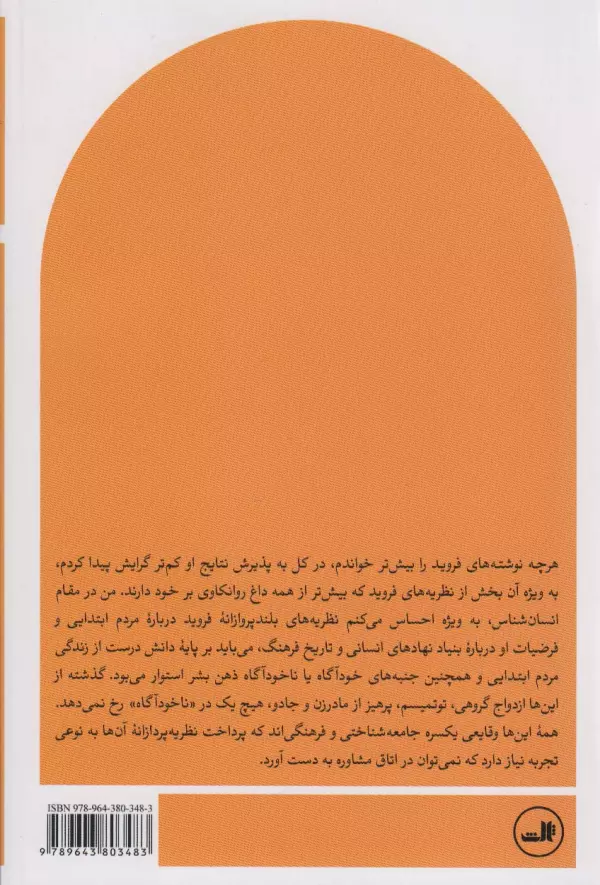 هرچه نوشته‌های فروید را بیش‌تر خواندم، در کل به پذیرش نتایج او کم‌تر گرایش پیدا کردم،
به ویژه آن بخش از نظریه‌های فروید که بیش‌تر از همه داغ روانکاوی بر خود دارند. من در مقام
انسان‌شناس، به ویژه احساس می‌کنم نظریه‌های بلندپروازانهٔ فروید دربارهٔ مردم ابتدایی و
فرضیات او دربارهٔ بنیاد نهادهای انسانی و تاریخ فرهنگ، می‌باید بر پایهٔ دانش درست از زندگی
مردم ابتدایی و همچنین جنبه‌های خودآگاه یا ناخودآگاه ذهن بشر استوار می‌بود. گذشته از
این‌ها ازدواج گروهی، توتمیسم، پرهیز از مادرزن و جادو، هیچ یک در «ناخودآگاه» رخ نمی‌دهد.
همهٔ این‌ها وقایعی یکسره جامعه‌شناختی و فرهنگی‌اند که پرداخت نظریه‌پردازانهٔ آن‌ها به نوعی
تجربه نیاز دارد که نمی‌توان در اتاق مشاوره به دست آورد.
ISBN 978-964-380-348-3
9 789643 803483
ثالث